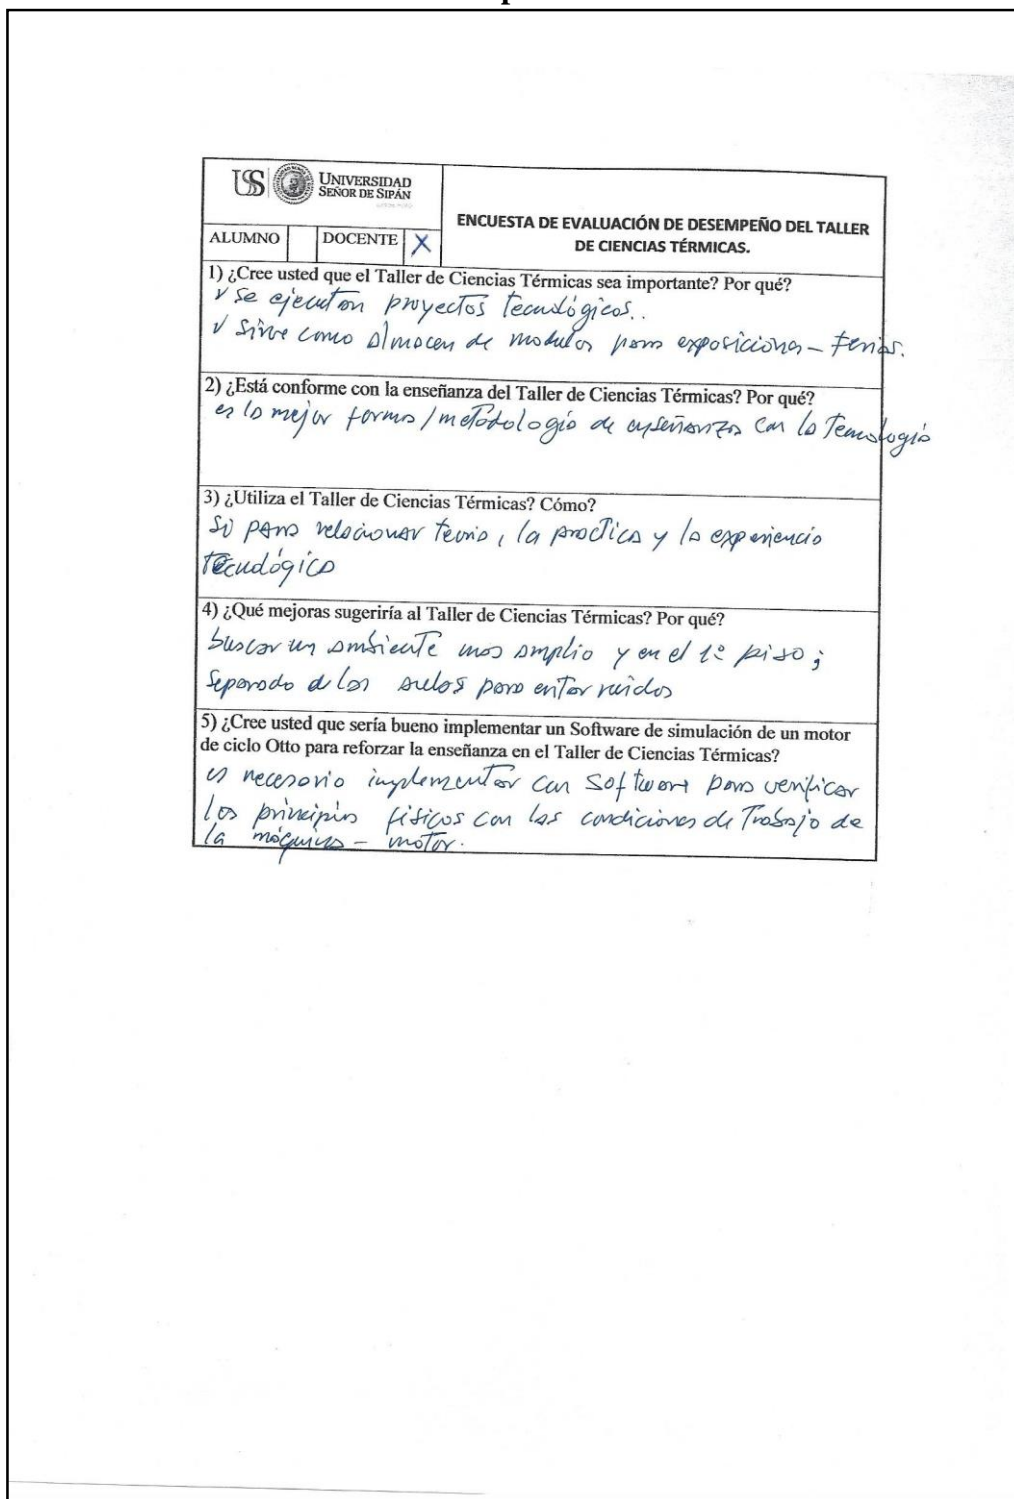 USS UNIVERSIDAD
SEÑOR DE SIPÁN
ENCUESTA DE EVALUACIÓN DE DESEMPEÑO DEL TALLER
DE CIENCIAS TÉRMICAS.
ALUMNO DOCENTE X
1) ¿Cree usted que el Taller de Ciencias Térmicas sea importante? Por qué?
✓ Se ejecutan proyectos tecnológicos..
✓ Sirve como Almacen de modulos para exposiciones - Ferias.
2) ¿Está conforme con la enseñanza del Taller de Ciencias Térmicas? Por qué?
es la mejor forma / metodologia de enseñanza con la Tecnología
3) ¿Utiliza el Taller de Ciencias Térmicas? Cómo?
Si para relacionar teoria, la practica y la experiencia
Tecnológica
4) ¿Qué mejoras sugeriría al Taller de Ciencias Térmicas? Por qué?
buscar un ambiente mas amplio y en el 1º piso;
Separado de las aulas para evitar ruidos
5) ¿Cree usted que sería bueno implementar un Software de simulación de un motor
de ciclo Otto para reforzar la enseñanza en el Taller de Ciencias Térmicas?
es necesario implementar con Software para verificar
los principios físicos con las condiciones de Trabajo de
la máquina - motor.